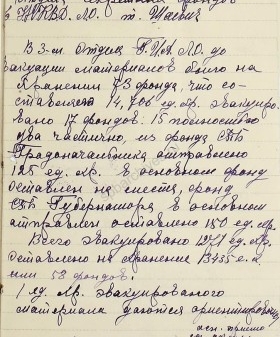 Отдел секретных фондов
НКВД. Л.О. т. Шаевич
В 3-м Отделе Г.И.А Л.О. до
эвакуации материалов было на
хранении 73 фонда, что со-
ставляло 14,706 ед. хр. эвакуиро-
вано 17 фондов. 15 полностью
два частично, из фонда СПБ
Градоначальника отправлено
125 ед. хр. в основном фонд
оставлен на месте, фонд
СПБ Губернатора в основном
отправлен оставлено 150 ед. хр.
Всего эвакуировано 1271 ед. хр.
оставлено на хранение 13435 е. х.
или 58 фондов.
1 ед. хр. эвакуированого
материала даются ориентировочно